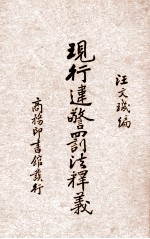 汪文璣編
現行違警罰法釋義
商務印書館發行